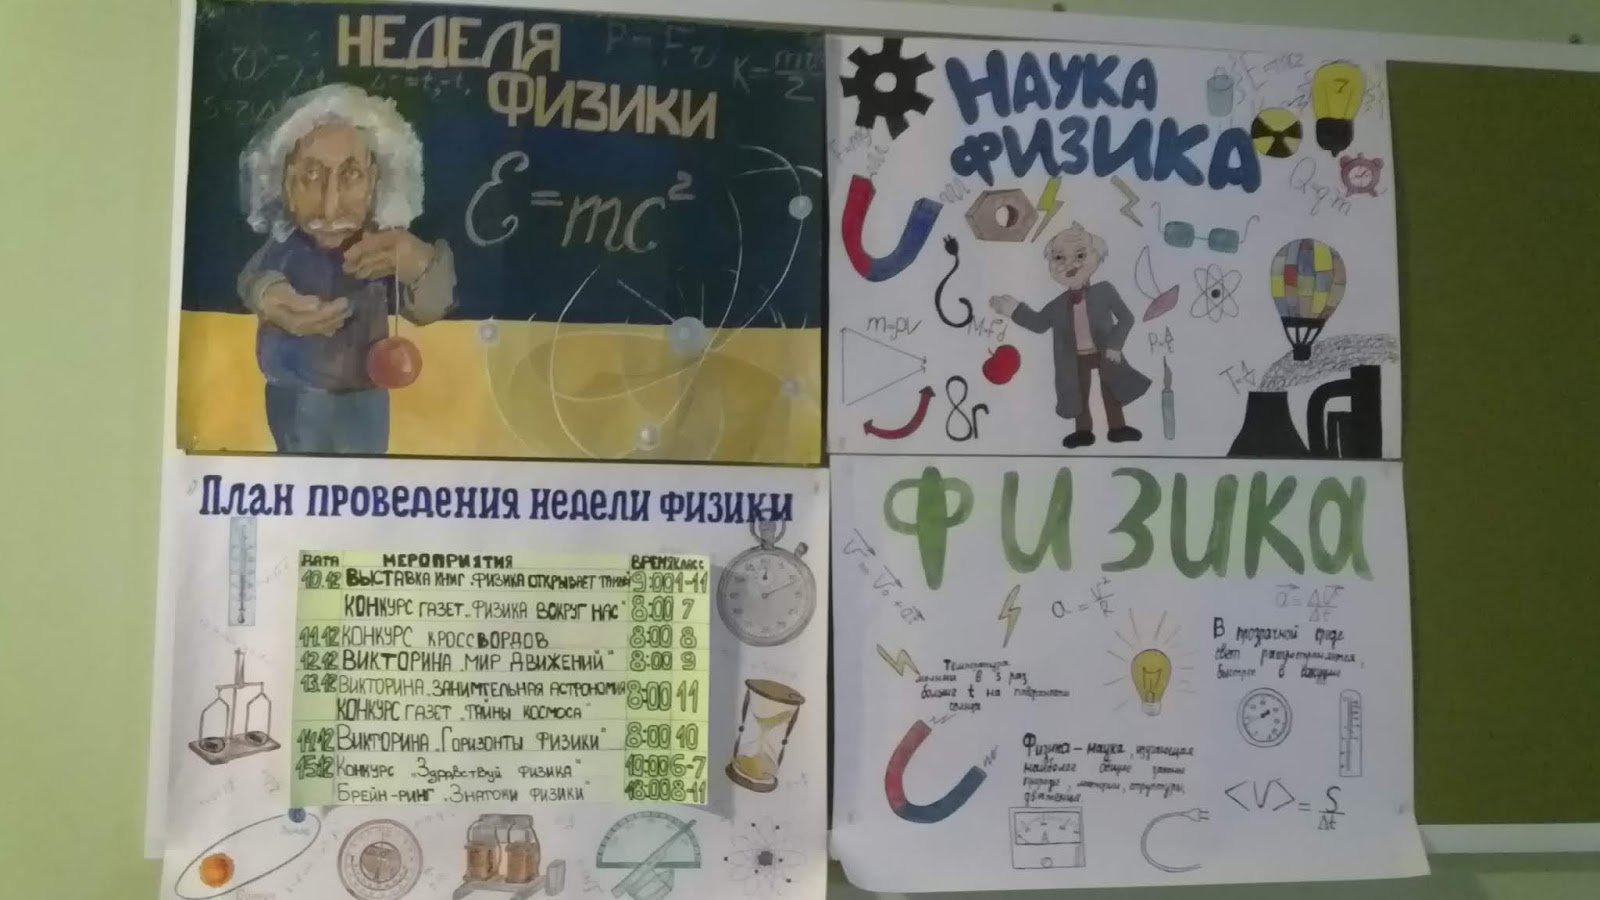 НЕДЕЛЯ
ФИЗИКИ
P=Fv
K=mv²/2
E=mc²
НАУКА
ФИЗИКА
E=mc²
F=mg
Q=qm
m=ρV
8г
План проведения недели физики
ДАТА МЕРОПРИЯТИЯ ВРЕМЯ КЛАСС
10.12 ВЫСТАВКА КНИГ „ФИЗИКА ОТКРЫВАЕТ ТАЙНЫ" 9:00 1-11
КОНКУРС ГАЗЕТ „ФИЗИКА ВОКРУГ НАС" 8:00 7
11.12 КОНКУРС КРОССВОРДОВ 8:00 8
12.12 ВИКТОРИНА „МИР ДВИЖЕНИЙ" 8:00 9
13.12 ВИКТОРИНА „ЗАНИМТЕЛЬНАЯ АСТРОНОМИЯ 8:00 11
КОНКУРС ГАЗЕТ „ТАЙНЫ КОСМОСА"
14.12 ВИКТОРИНА „ГОРИЗОНТЫ ФИЗИКИ" 8:00 10
15.12 КОНКУРС „ЗДРАВСТВУЙ ФИЗИКА" 10:00 6-7
БРЕЙН-РИНГ „ЗНАТОКИ ФИЗИКИ" 8-11
ФИЗИКА
a=v²/R
a=Δv/Δt
Температура
молнии в 5 раз
больше t на поверхности
солнца
В прозрачной среде
свет распространяется
быстрее в вакууме
Физика – наука, изучающая
наиболее общие законы
природы, материи, структуры,
движения.
A
<V>=S/Δt